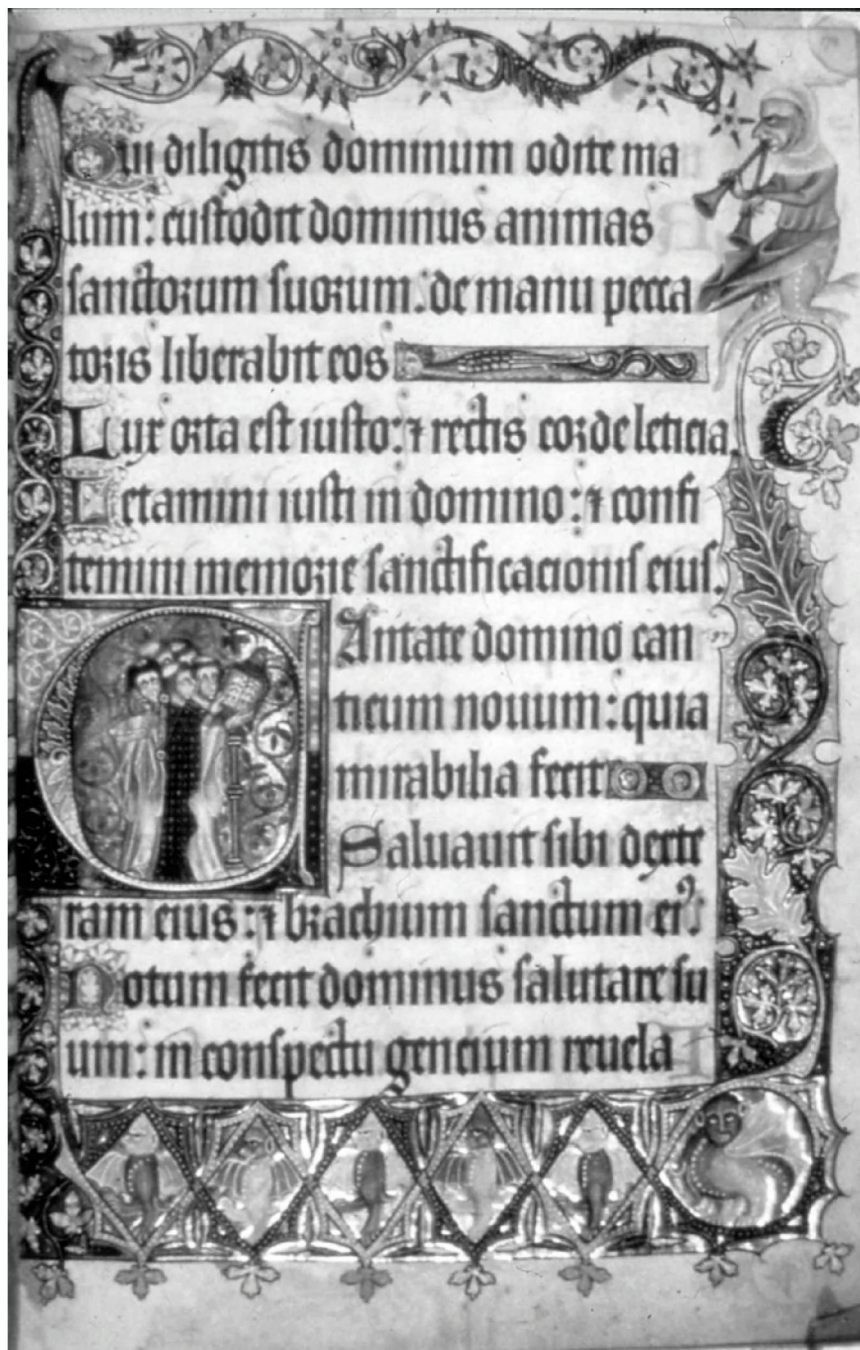 Qui diligitis dominum odite ma
lum: custodit dominus animas
sanctorum suorum. de manu pecca
toris liberabit eos
Lux orta est iusto: ⁊ rectis corde leticia.
Letamini iusti in domino: ⁊ confi
temini memorie sanctificacionis eius.
CAntate domino can
ticum nouum: quia
mirabilia fecit
Saluauit sibi dexte
ram eius: ⁊ brachium sanctum eiꝰ.
Notum fecit dominus salutare su
um: in conspectu gencium reuela